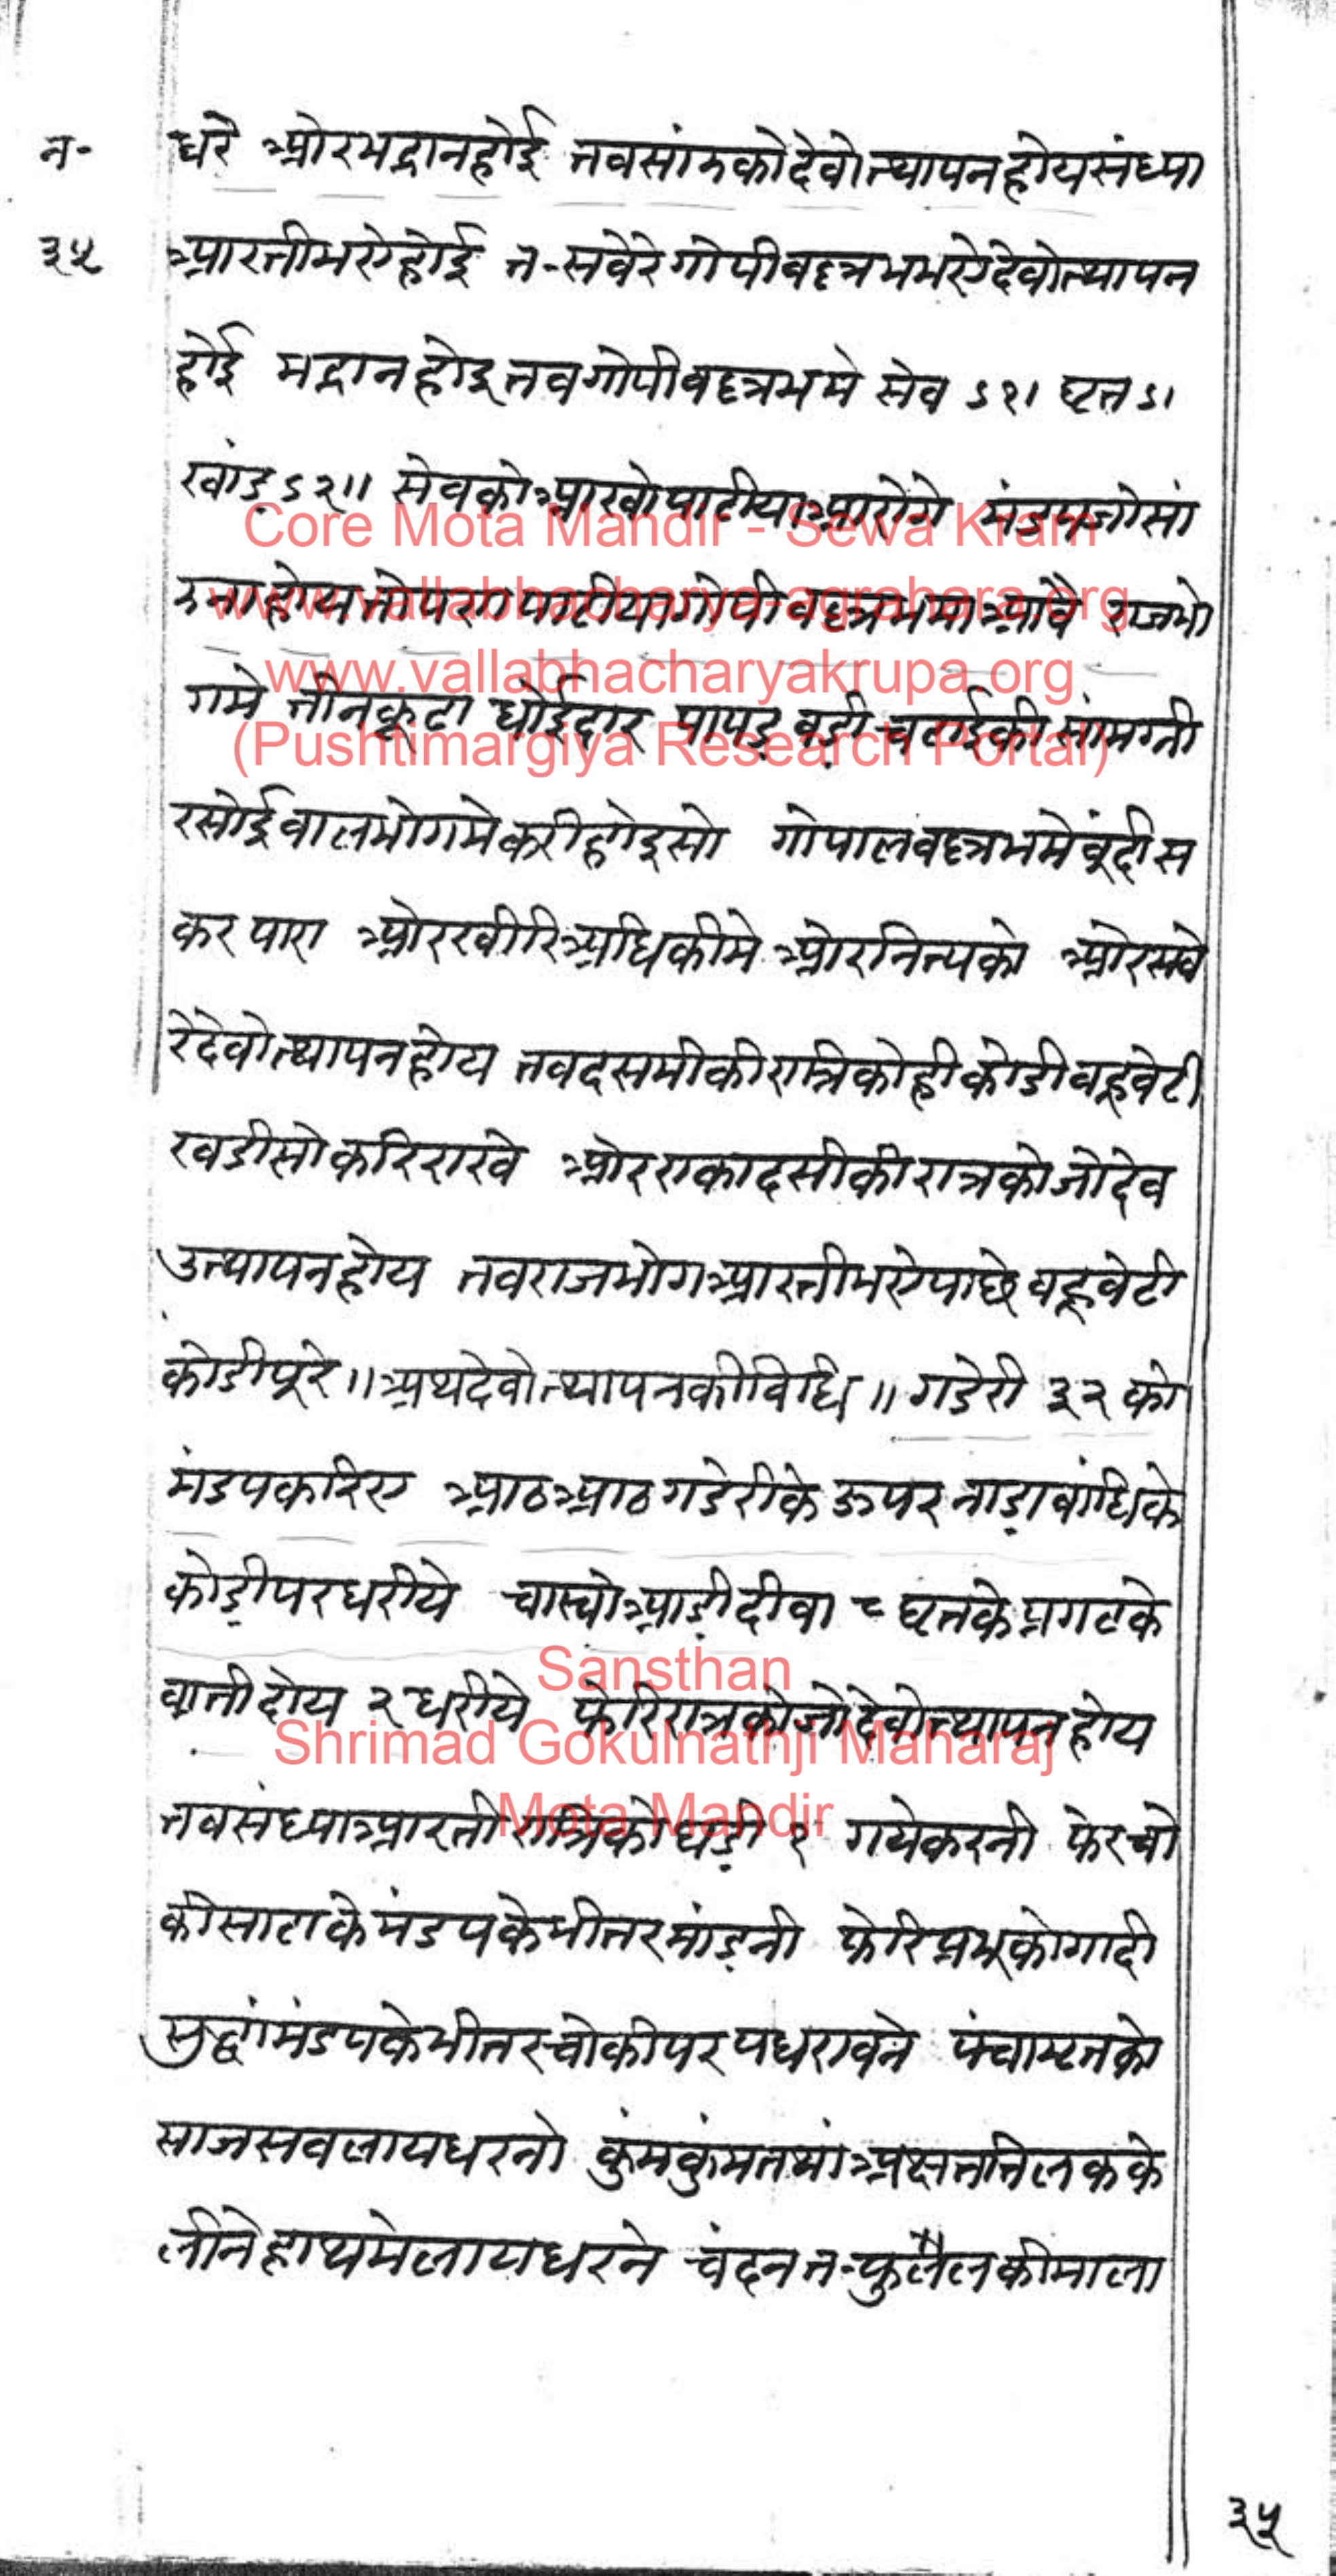 न-
३५
धरे ओर भद्रा न होई तव सांझको देवोत्थापन होय संध्या
आरती भए होई त-सवेरे गोपीवल्लभ भए देवोत्थापन
होई भद्रा न होइ तव गोपीवल्लभमे सेव ऽ१। घृत ऽ।
खांड़ ऽ२॥ सेवको आखो पाटीया आरोगे
गोपीवल्लभमा आवै राजभो
गमे तीनकूटा धोईदार पापड़ वड़ी सांमग्री
रसोई वालभोगमे करी होइ सो गोपालवल्लभमे बूंदी स
कर पारा ओर खीरि अधिकीमे ओर नित्यको ओर सवे
रे देवोत्थापन होय तव दसमीकी रात्रिको ही कोडी वहूवेटी
खडीसो करि राखे ओर एकादसीकी रात्रको जो देव
उत्थापन होय तव राजभोग आरती भए पाछे वहूवेटी
कोडी पूरे ॥ अथ देवोत्थापनकी विधि ॥ गडेरी ३२ को
मंडप करिए आठ आठ गडेरीके ऊपर नाड़ा वांधिके
कोड़ी पर धरीये चास्घो आड़ी दीवा ८ घृतके प्रगटके
वाती दोय २ धरीये फेरि रात्रको जो देवोत्थापन होय
तव संध्या आरती रात्रिको घड़ी १ गये करनी फेर चो
की साटाके मंडपके भीतर मांड़नी फेरि प्रभूको गादी
सुद्धां मंडपके भीतर चोकी पर पधरावने पंचामृतको
साज सव लाय धरनो कुंमकुंम तथां अक्षत तिलकके
लीने हाथमे लाय धरने चंदन त-फुलैलकी माला
३५
Core Mota Mandir - Sewa Kram
www.vallabhacharya-agrahara.org
www.vallabhacharyakrupa.org
(Pushtimargiya Research Portal)
Sansthan
Shrimad Gokulnathji Maharaj
Mota Mandir